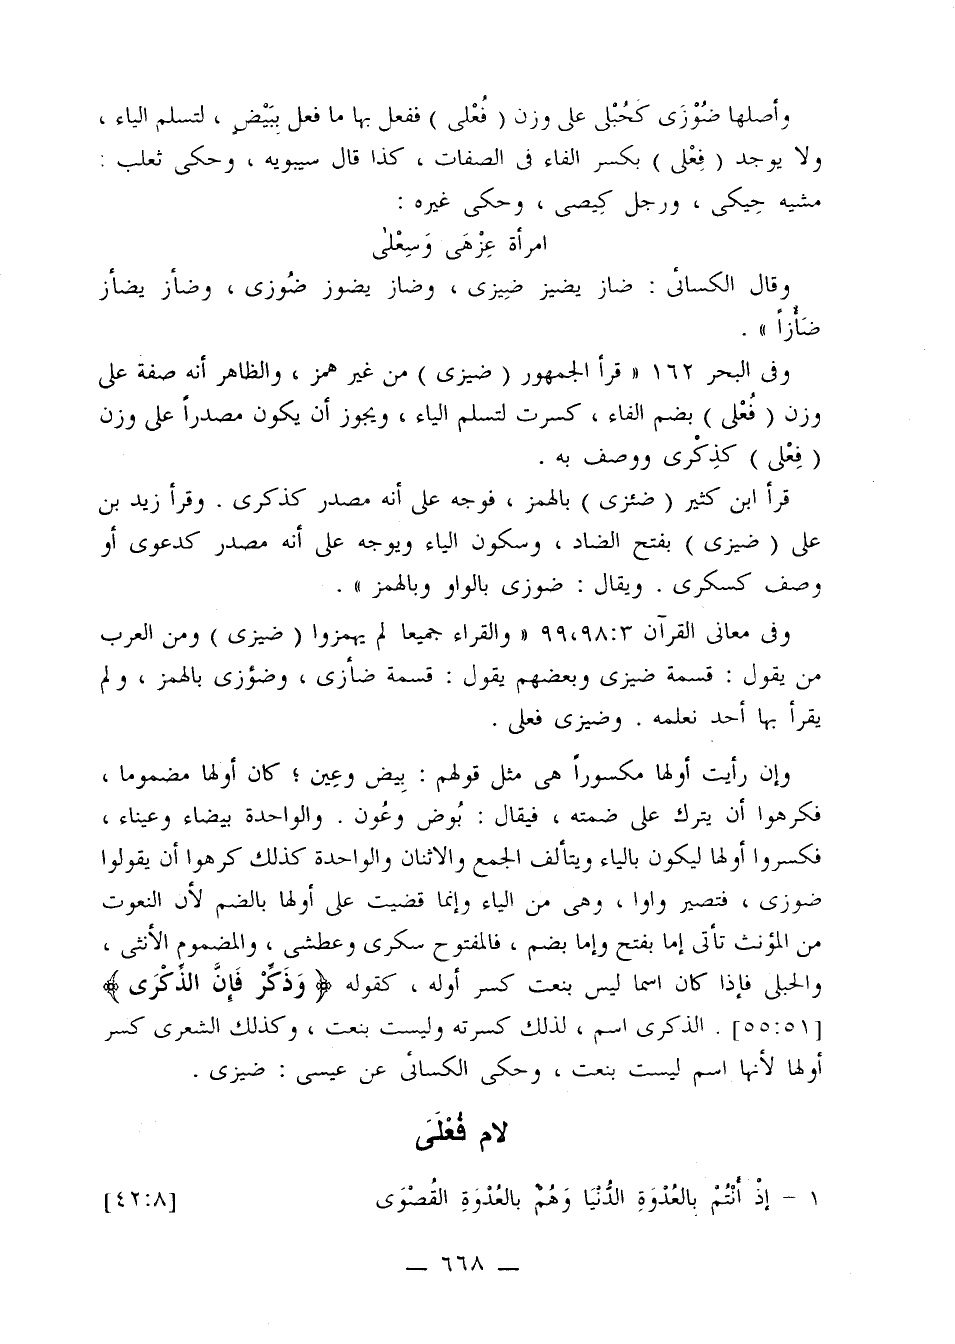 وأصلها ضُوْزَى كَحُبْلى على وزن ( فُعْلى ) ففعل بها ما فعل بِبَيْضٍ ، لتسلم الياء ،
ولا يوجد ( فِعْلى ) بكسر الفاء فى الصفات ، كذا قال سيبويه ، وحكى ثعلب :
مشيه حِيكى ، ورجل كِيصى ، وحكى غيره :
امرأة عِزْهَى وَسِعْلىٰ
وقال الكسائى : ضاز يضيز ضِيزى ، وضاز يضوز ضُوزى ، وضأز يضأز
ضَأْزاً » .
وفى البحر ١٦٢ « قرأ الجمهور ( ضيزى ) من غير همز ، والظاهر أنه صفة على
وزن ( فُعْلى ) بضم الفاء ، كسرت لتسلم الياء ، ويجوز أن يكون مصدراً على وزن
( فِعْلى ) كَذِكْرى ووصف به .
قرأ ابن كثير ( ضئزى ) بالهمز ، فوجه على أنه مصدر كذكرى . وقرأ زيد بن
على ( ضيزى ) بفتح الضاد ، وسكون الياء ويوجه على أنه مصدر كدعوى أو
وصف كسكرى . ويقال : ضوزى بالواو وبالهمز » .
وفى معانى القرآن ٩٩،٩٨:٣ « والقراء جميعا لم يهمزوا ( ضيزى ) ومن العرب
من يقول : قسمة ضيزى وبعضهم يقول : قسمة ضأزى ، وضؤزى بالهمز ، ولم
يقرأ بها أحد نعلمه . وضيزى فعلى .
وإن رأيت أولها مكسوراً هى مثل قولهم : بِيض وعِين ؛ كان أولها مضموما ،
فكرهوا أن يترك على ضمته ، فيقال : بُوض وعُون . والواحدة بيضاء وعيناء ،
فكسروا أولها ليكون بالياء ويتألف الجمع والاثنان والواحدة كذلك كرهوا أن يقولوا
ضوزى ، فتصير واوا ، وهى من الياء وإنما قضيت على أولها بالضم لأن النعوت
من المؤنث تأتى إما بفتح وإما بضم ، فالمفتوح سكرى وعطشى ، والمضموم الأنثى ،
والحبلى فإذا كان اسما ليس بنعت كسر أوله ، كقوله ﴿ وَذَكِّرْ فَإِنَّ الذِّكْرَى ﴾
[٥٥:٥١] . الذكرى اسم ، لذلك كسرته وليست بنعت ، وكذلك الشعرى كسر
أولها لأنها اسم ليست بنعت ، وحكى الكسائى عن عيسى : ضيزى .
لام فُعْلَى
١ - إِذْ أَنْتُمْ بِالعُدْوَةِ الدُّنْيَا وَهُمْ بِالعُدْوَةِ القُصْوَى [٤٢:٨]
— ٦٦٨ —